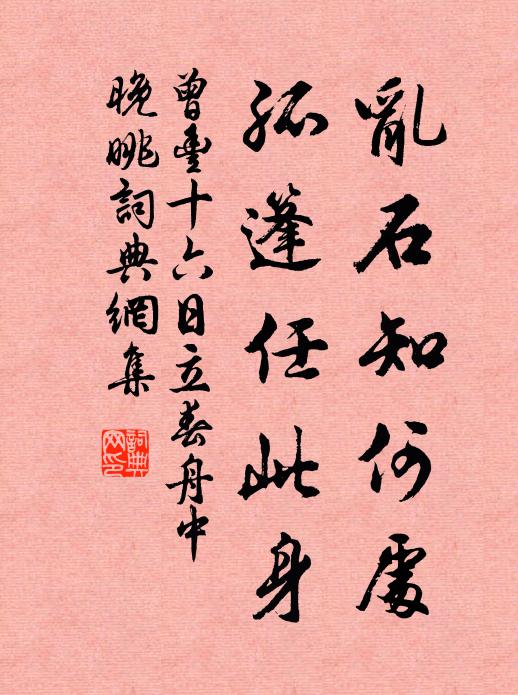 亂石知何處
孤篷任此身
曾豐十六日立春舟中
晚眺詞典網集
詞典
网印